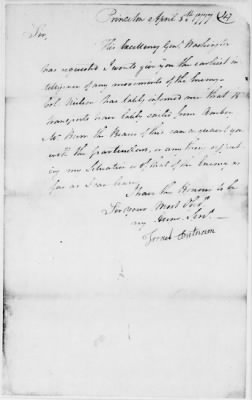 Princeton April 5th 1777
Sir,
His Excellency Genl Washington
has requested I would give you the earliest in
telligence of any movements of the Enemy
Colo Neilson has lately informed me that 18
transports have lately sailed from Amboy
Mr Bunn the Bearer of this can acquaint you
with the particulars, or any thing respect
ing my Situation or that of the Enemy as
far as I can learn,
I have the Honour to be
Sir your Most Obdt
my Hum Servt
Israel Putnam